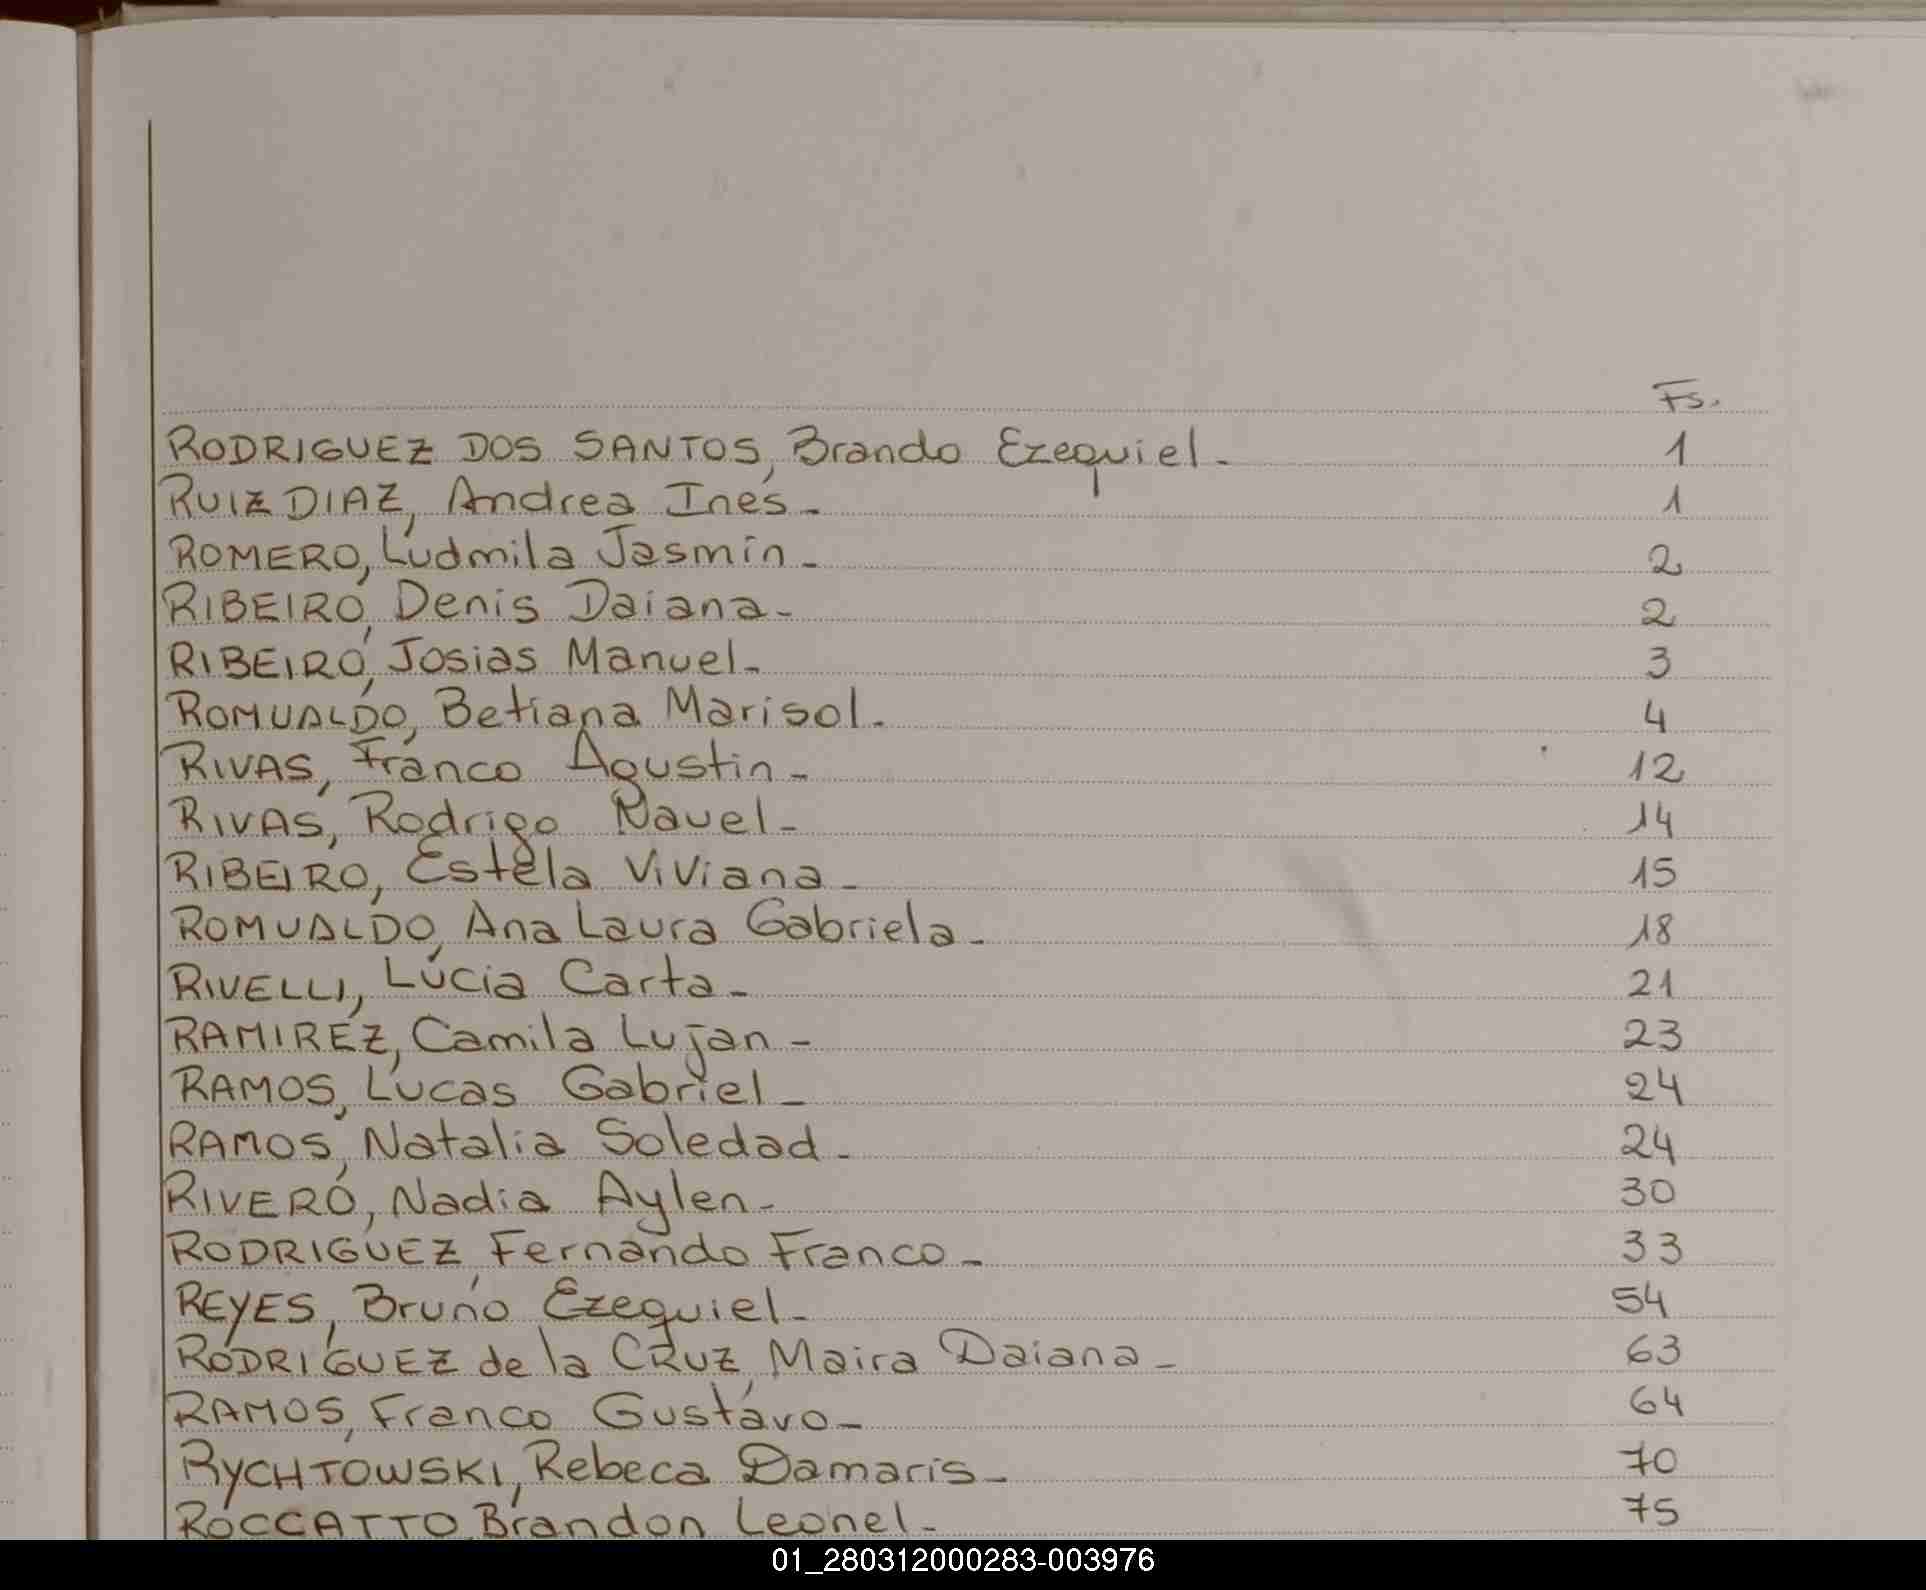 Fs.
RODRIGUEZ DOS SANTOS, Brando Ezequiel - 1
RUIZ DIAZ, Andrea Inés - 1
ROMERO, Ludmila Jasmín - 2
RIBEIRO, Denis Daiana - 2
RIBEIRO, Josias Manuel - 3
ROMUALDO, Betiana Marisol - 4
RIVAS, Franco Agustin - 12
RIVAS, Rodrigo Nauel - 14
RIBEIRO, Estela Viviana - 15
ROMUALDO, Ana Laura Gabriela - 18
RIVELLI, Lucia Carta - 21
RAMIREZ, Camila Lujan - 23
RAMOS, Lucas Gabriel - 24
RAMOS, Natalia Soledad - 24
RIVERO, Nadia Aylen - 30
RODRIGUEZ, Fernando Franco - 33
REYES, Bruno Ezequiel - 54
RODRIGUEZ de la CRUZ, Maira Daiana - 63
RAMOS, Franco Gustavo - 64
RYCHTOWSKI, Rebeca Damaris - 70
ROCCATTO, Brandon Leonel - 75
01_280312000283-003976